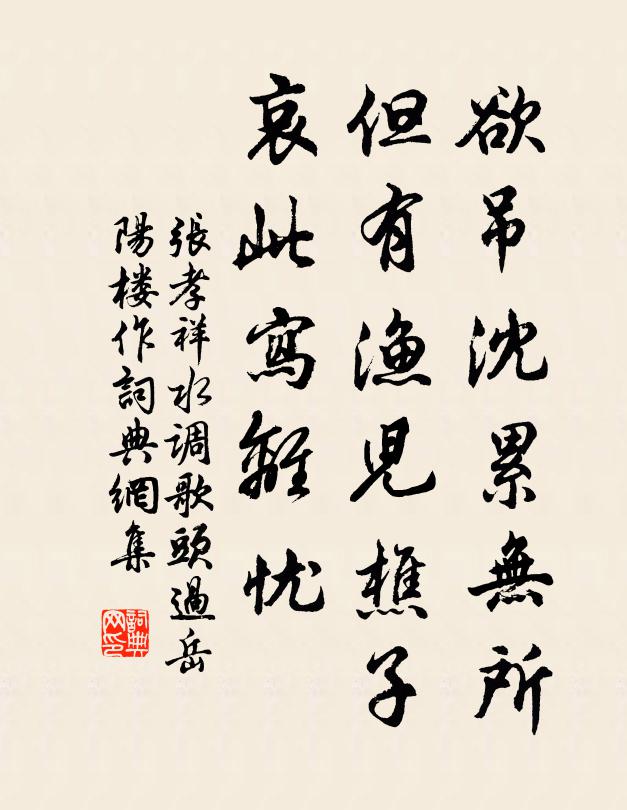 欲吊沈累無所
但有漁児樵子
哀此寫離忧
張孝祥水调歌頭過岳
陽楼作詞典網集
詞典
网印